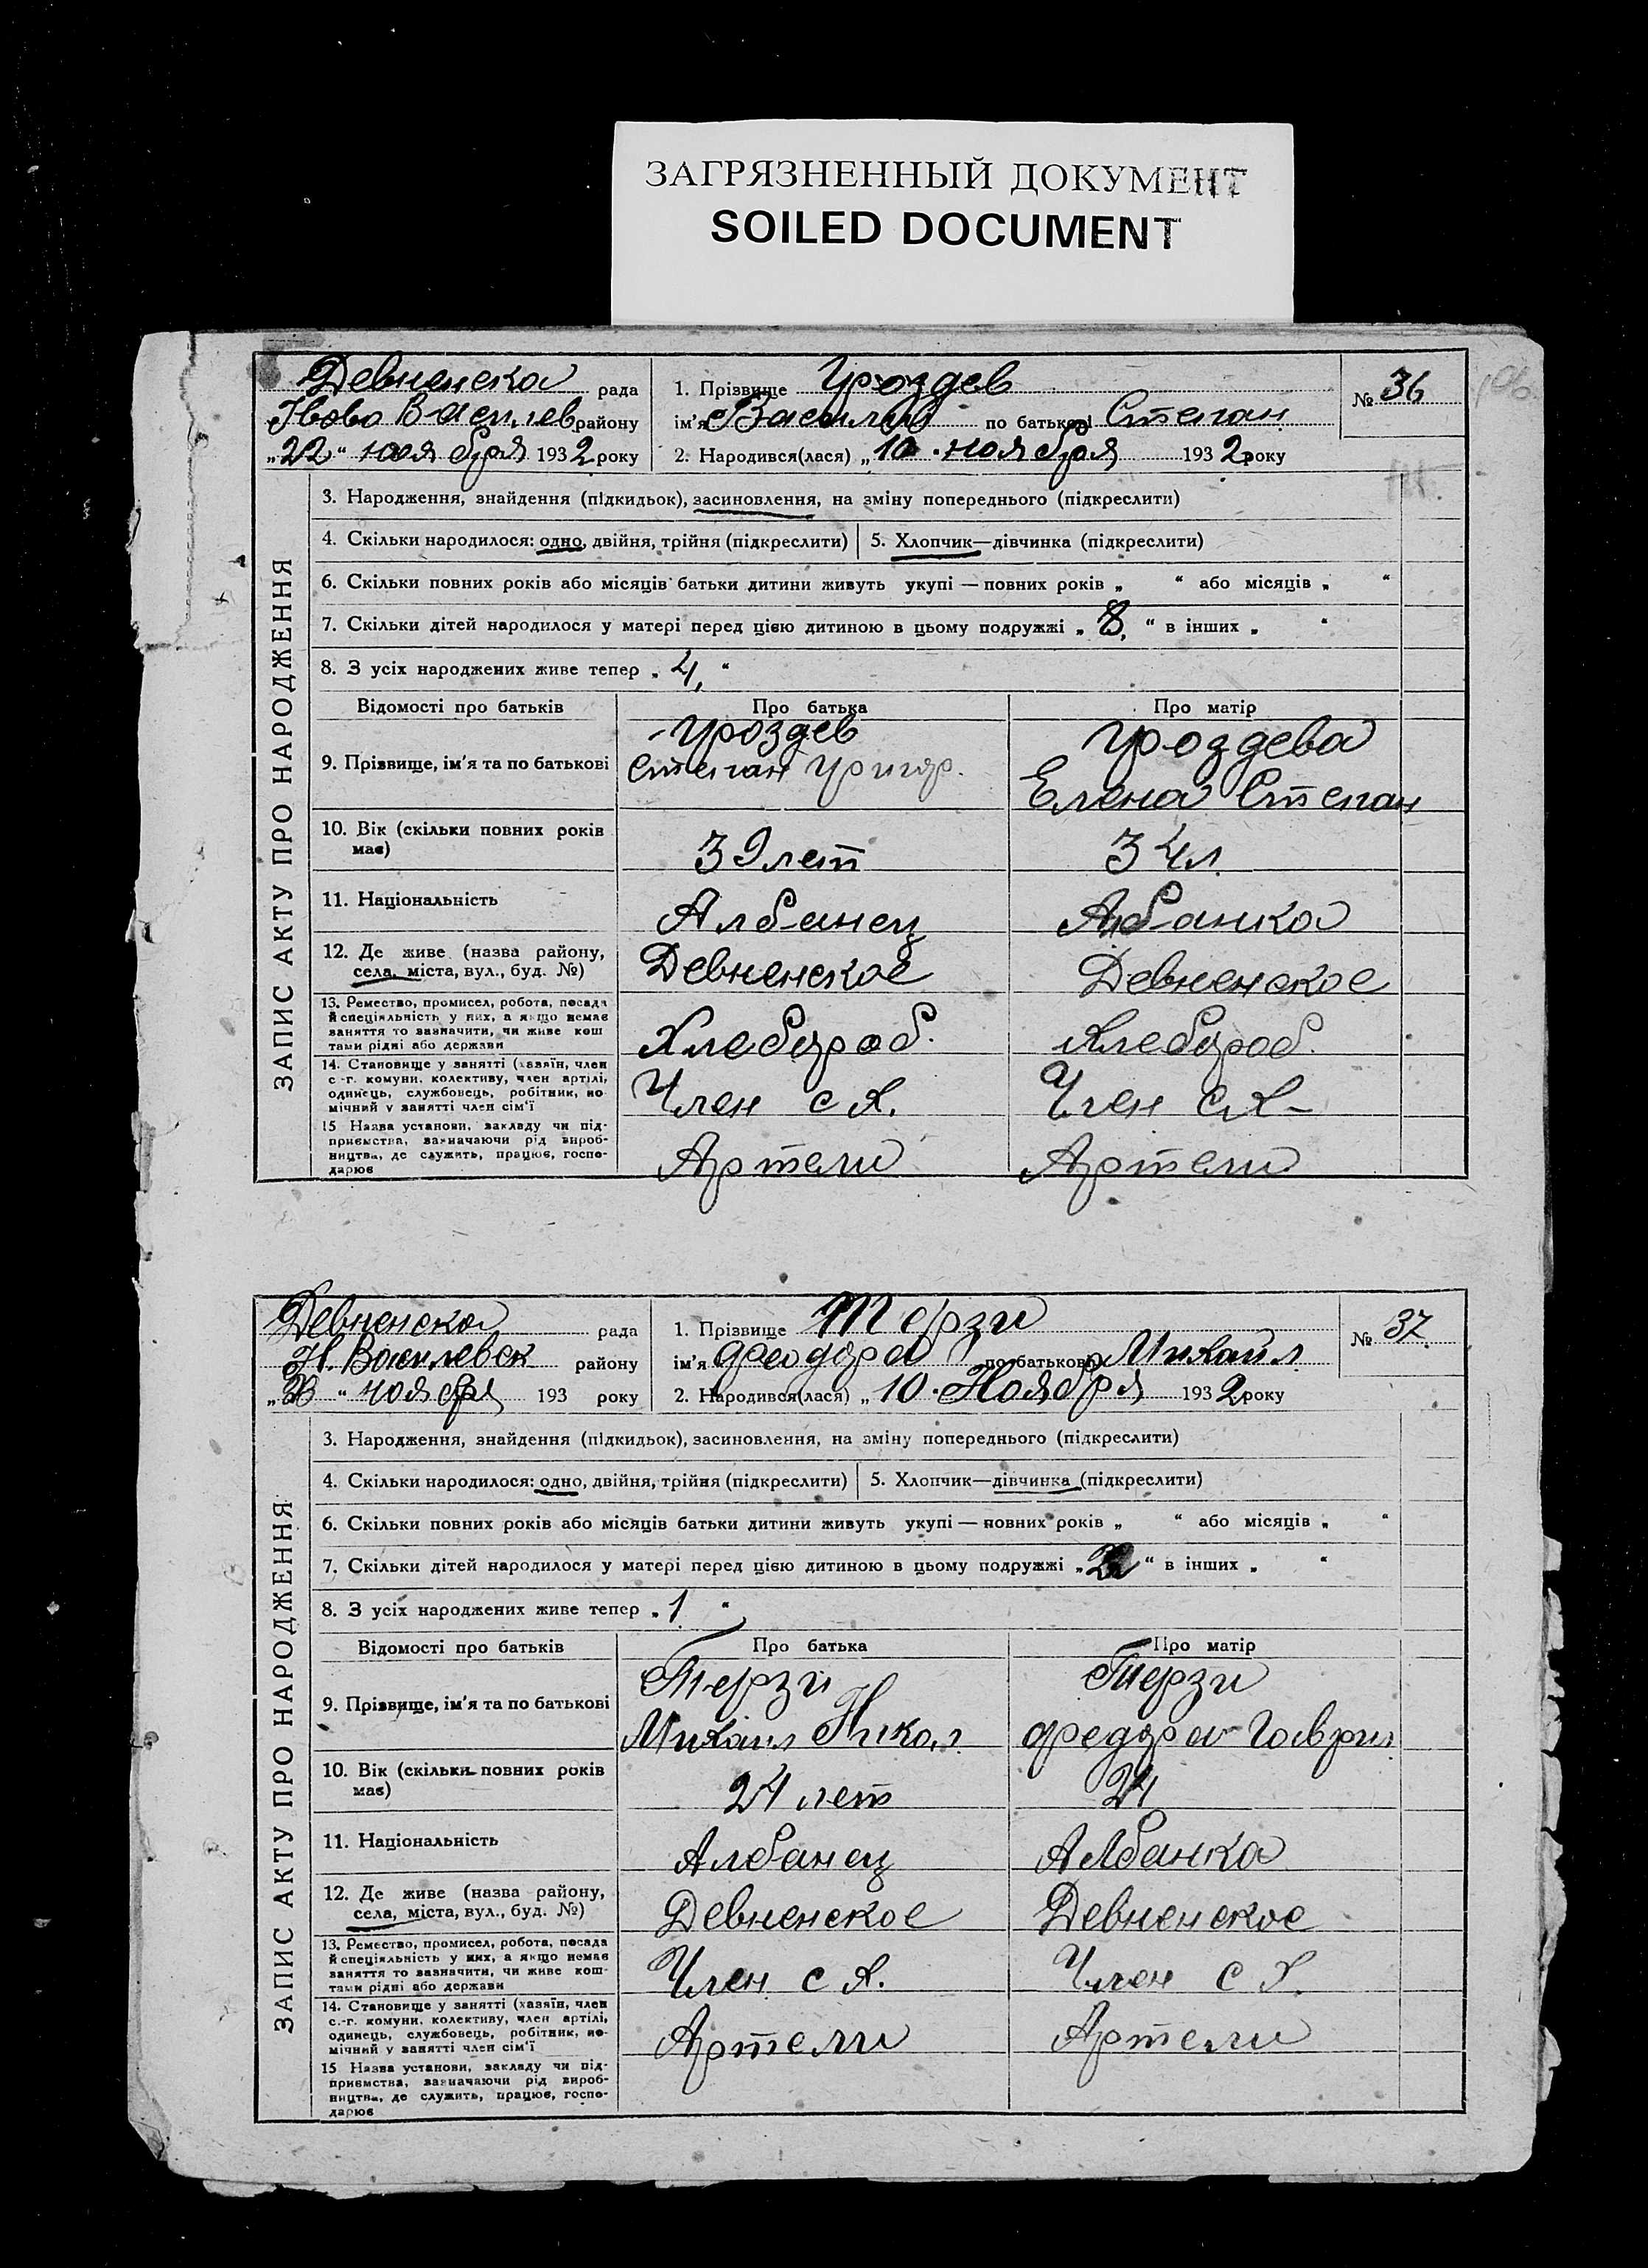 ЗАГРЯЗНЕННЫЙ ДОКУМЕНТ
SOILED DOCUMENT
Девненска рада
Ново Васплев району
„22“ ноября 1932 року
1. Прізвище Гроздев
ім'я Василий по батькові Степан
2. Народився(лася) „10 ноября 1932 року
№ 36
ЗАПИС АКТУ ПРО НАРОДЖЕННЯ
3. Народження, знайдення (підкидьок), засиновлення, на зміну попереднього (підкреслити)
4. Скільки народилося: одно, двійня, трійня (підкреслити) 5. Хлопчик—дівчинка (підкреслити)
6. Скільки повних років або місяців батьки дитини живуть укупі — повних років „ “ або місяців „ “
7. Скільки дітей народилося у матері перед цією дитиною в цьому подружжі „ 8. “ в інших „ “
8. З усіх народжених живе тепер „ 4, “
Відомості про батьків Про батька Про матір
9. Прізвище, ім'я та по батькові Гроздев Гроздева
Степан Григор. Елена Степан
10. Вік (скільки повних років має) 39 лет 34 л.
11. Національність Албанец Албанка
12. Де живе (назва району,
села, міста, вул., буд. №) Девненское Девненское
13. Ремество, промисел, робота, посада
й спеціяльність у них, а якщо немає
заняття то зазначити, чи живе кош
тами рідні або держави Хлебороб. Хлебороб.
14. Становище у занятті (хазяїн, член
с.-г. комуни, колективу, член артілі,
одинець, службовець, робітник, по
мічний у занятті член сім'ї Член с Х. Член с Х-
15 Назва установи, закладу чи під-
приємства, зазначаючи рід вироб-
ництва, де служить, працює, госпо-
дарює Артели Артели
Девненска рада
Н. Василевск району
ноября 193 року
1. Прізвище Терзи
ім'я Феодора по батькові Михаил
2. Народився(лася) „10. Ноября 1932 року
№ 37.
ЗАПИС АКТУ ПРО НАРОДЖЕННЯ
3. Народження, знайдення (підкидьок), засиновлення, на зміну попереднього (підкреслити)
4. Скільки народилося: одно, двійня, трійня (підкреслити) 5. Хлопчик—дівчинка (підкреслити)
6. Скільки повних років або місяців батьки дитини живуть укупі — повних років „ “ або місяців „ “
7. Скільки дітей народилося у матері перед цією дитиною в цьому подружжі „ “ в інших „ “
8. З усіх народжених живе тепер „ 1 “
Відомості про батьків Про батька Про матір
9. Прізвище, ім'я та по батькові Терзи Терзи
Михаил Никол. Федора Гаврил
10. Вік (скільки повних років має) 24 лет 24
11. Національність Албанец Албанка
12. Де живе (назва району,
села, міста, вул., буд. №) Девненское Девненское
13. Ремество, промисел, робота, посада
й спеціяльність у них, а якщо немає
заняття то зазначити, чи живе кош-
тами рідні або держави Член с Х. Член с Х.
14. Становище у занятті (хазяїн, член
с.-г. комуни, колективу, член артілі,
одинець, службовець, робітник, по-
мічний у занятті член сім'ї Артели Артели
15 Назва установи, закладу чи під-
приємства, зазначаючи рід вироб-
ництва, де служить, працює, госпо-
дарює